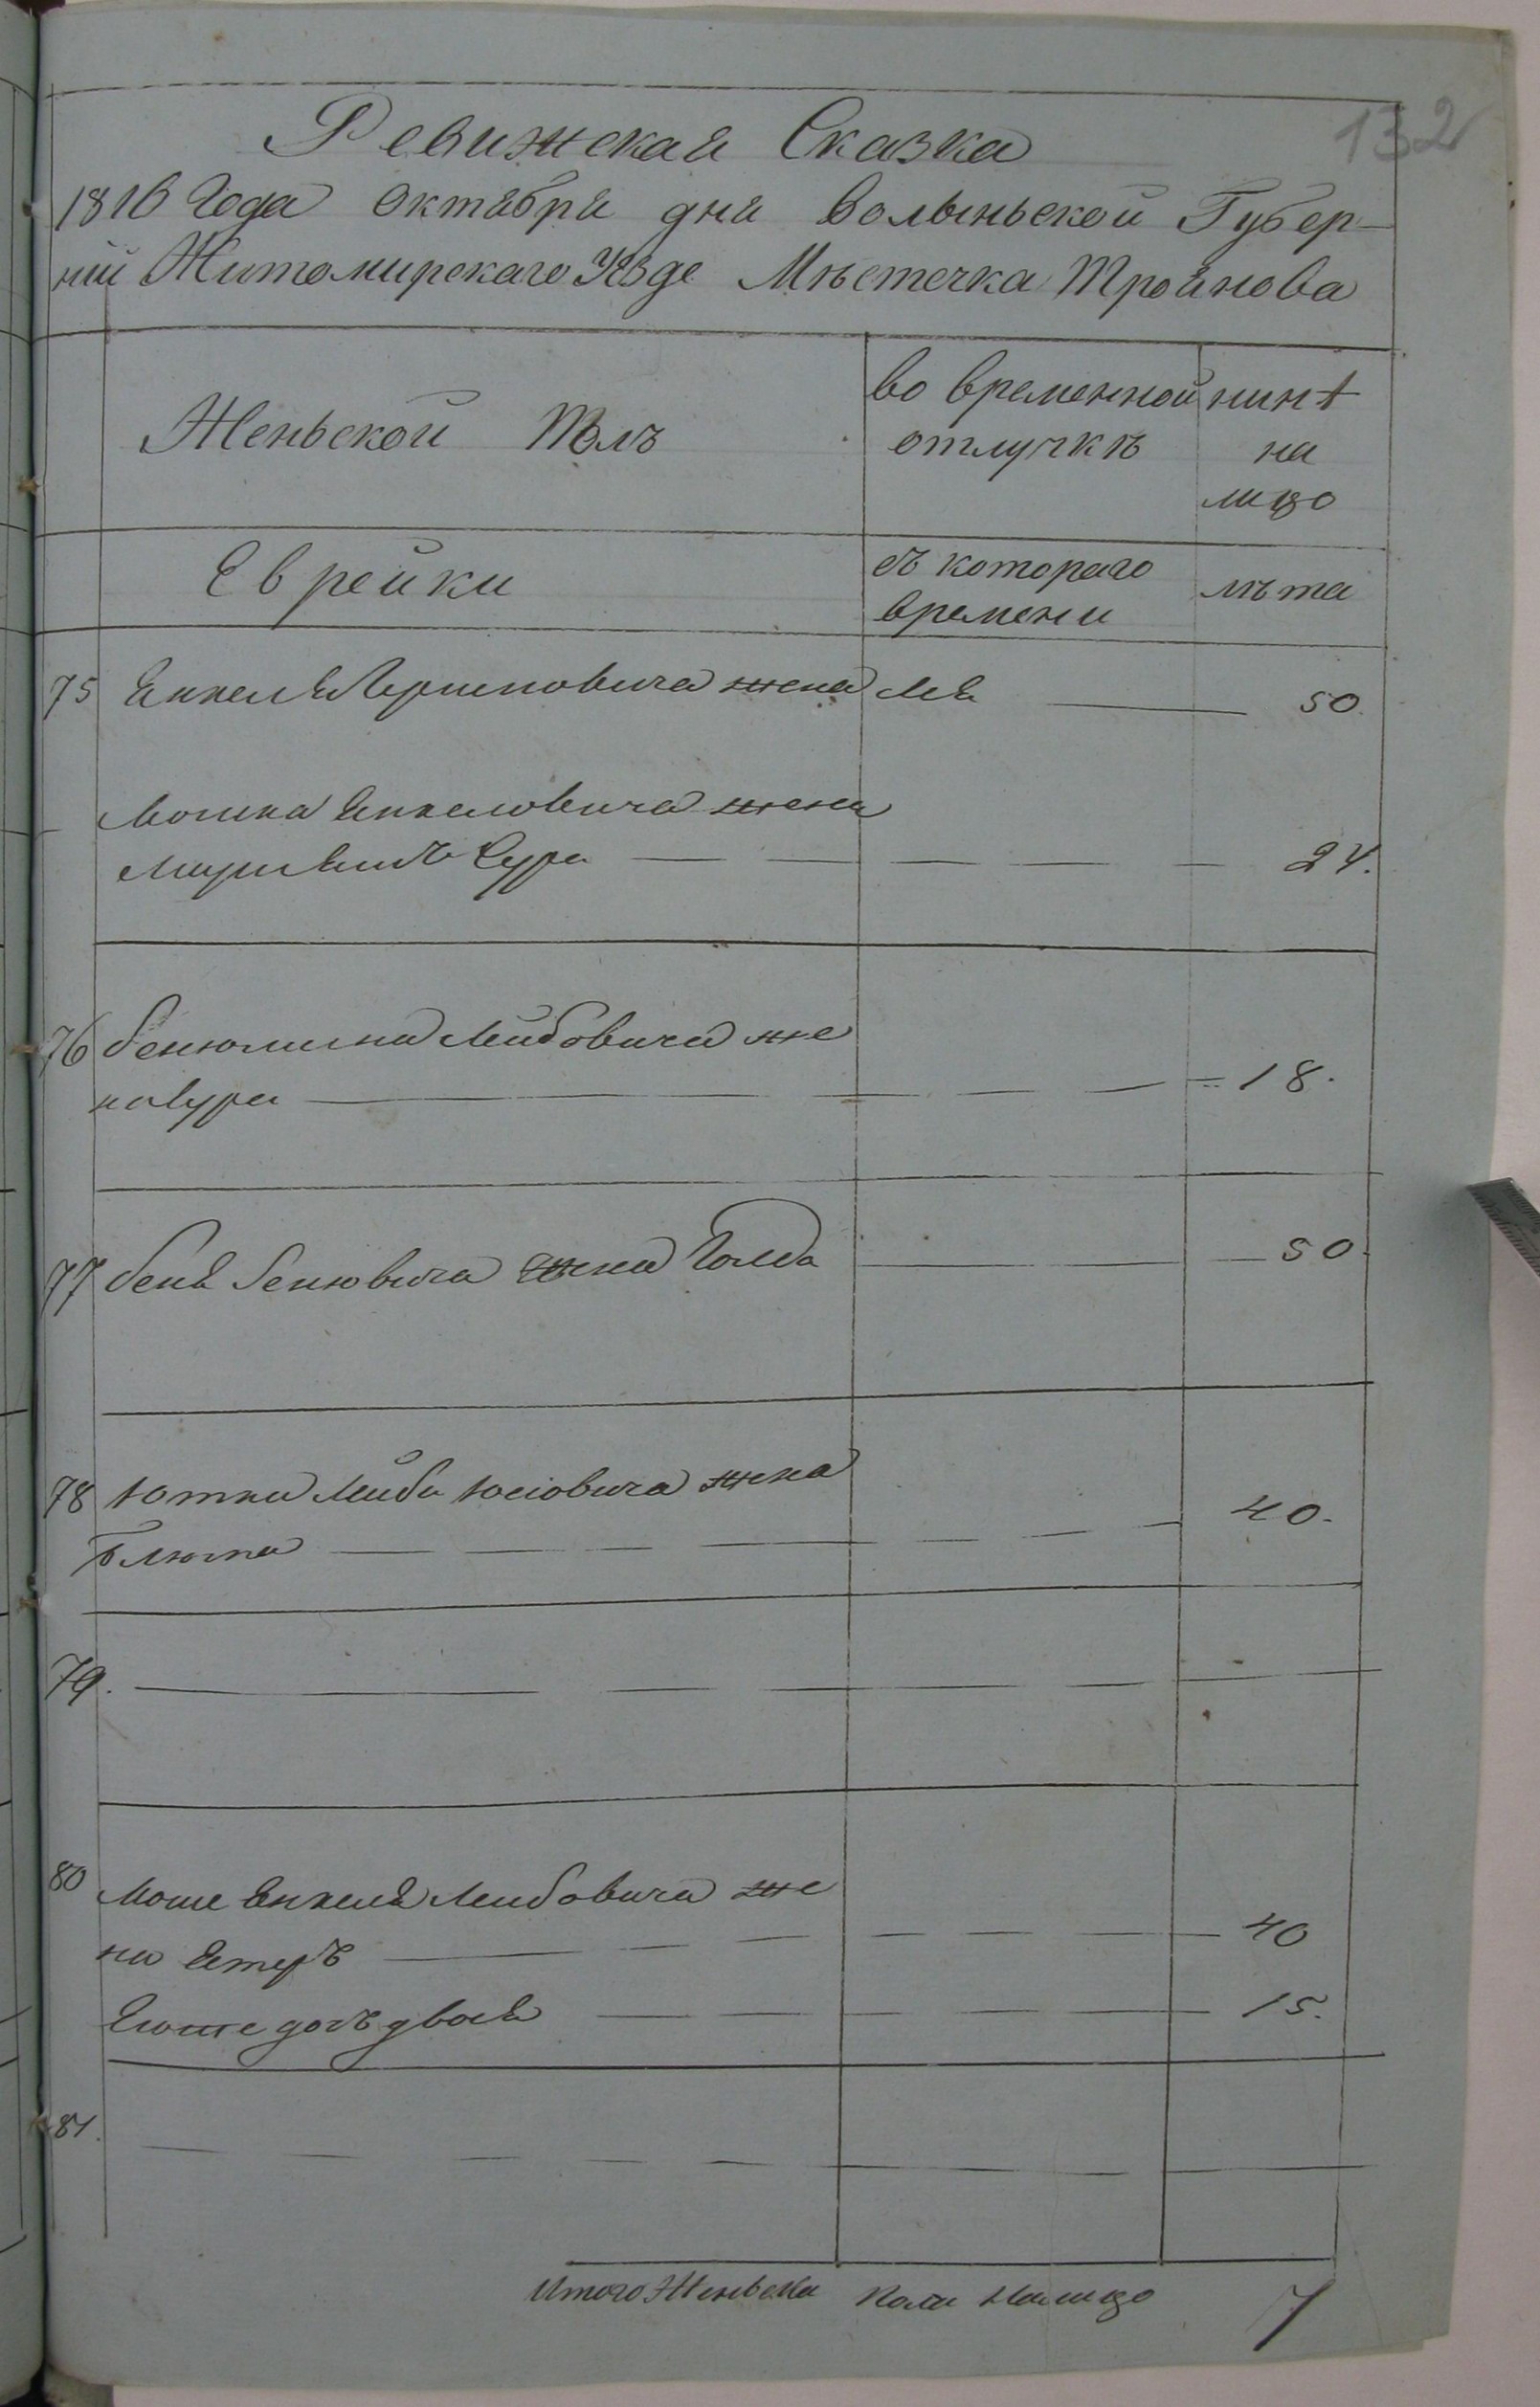 132
Ревижская Сказка
1816 Года Октября дня Волыньской Губер-
нии Житомирскаго Уезде Мѣстечка Троянова
Женьской Полъ
во временной отлучкѣ
нинѣ на лицо
Еврейки
съ котораго времени
лѣта
75 Янкеля Гершковича жена Лея 50.
Мошка Янкеловича жена
Сура 24.
76 Бенюмина Лейбовича же
на Сура 18.
77 Беня Бенювича жена Голда 50.
78 Юткы Лейбы Юсіовича жена
Блюма 40.
79.
80 Моше Янкеля Лейбовича же
на Естеръ 40
дочъ двося 15.
81.
Итого Женьска Пола Налицо 7